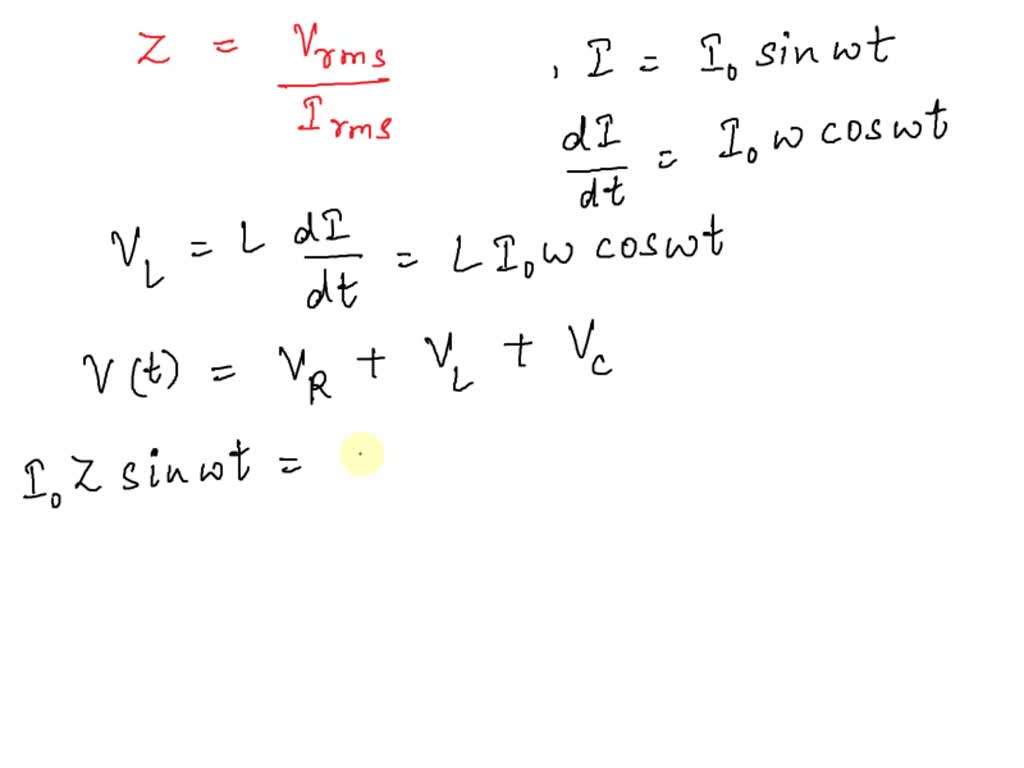 Z = Vrms / Irms , I = I₀ sin ωt
dI/dt = I₀ ω cos ωt
V_L = L dI/dt = L I₀ ω cos ωt
V(t) = V_R + V_L + V_C
I₀ Z sin ωt =